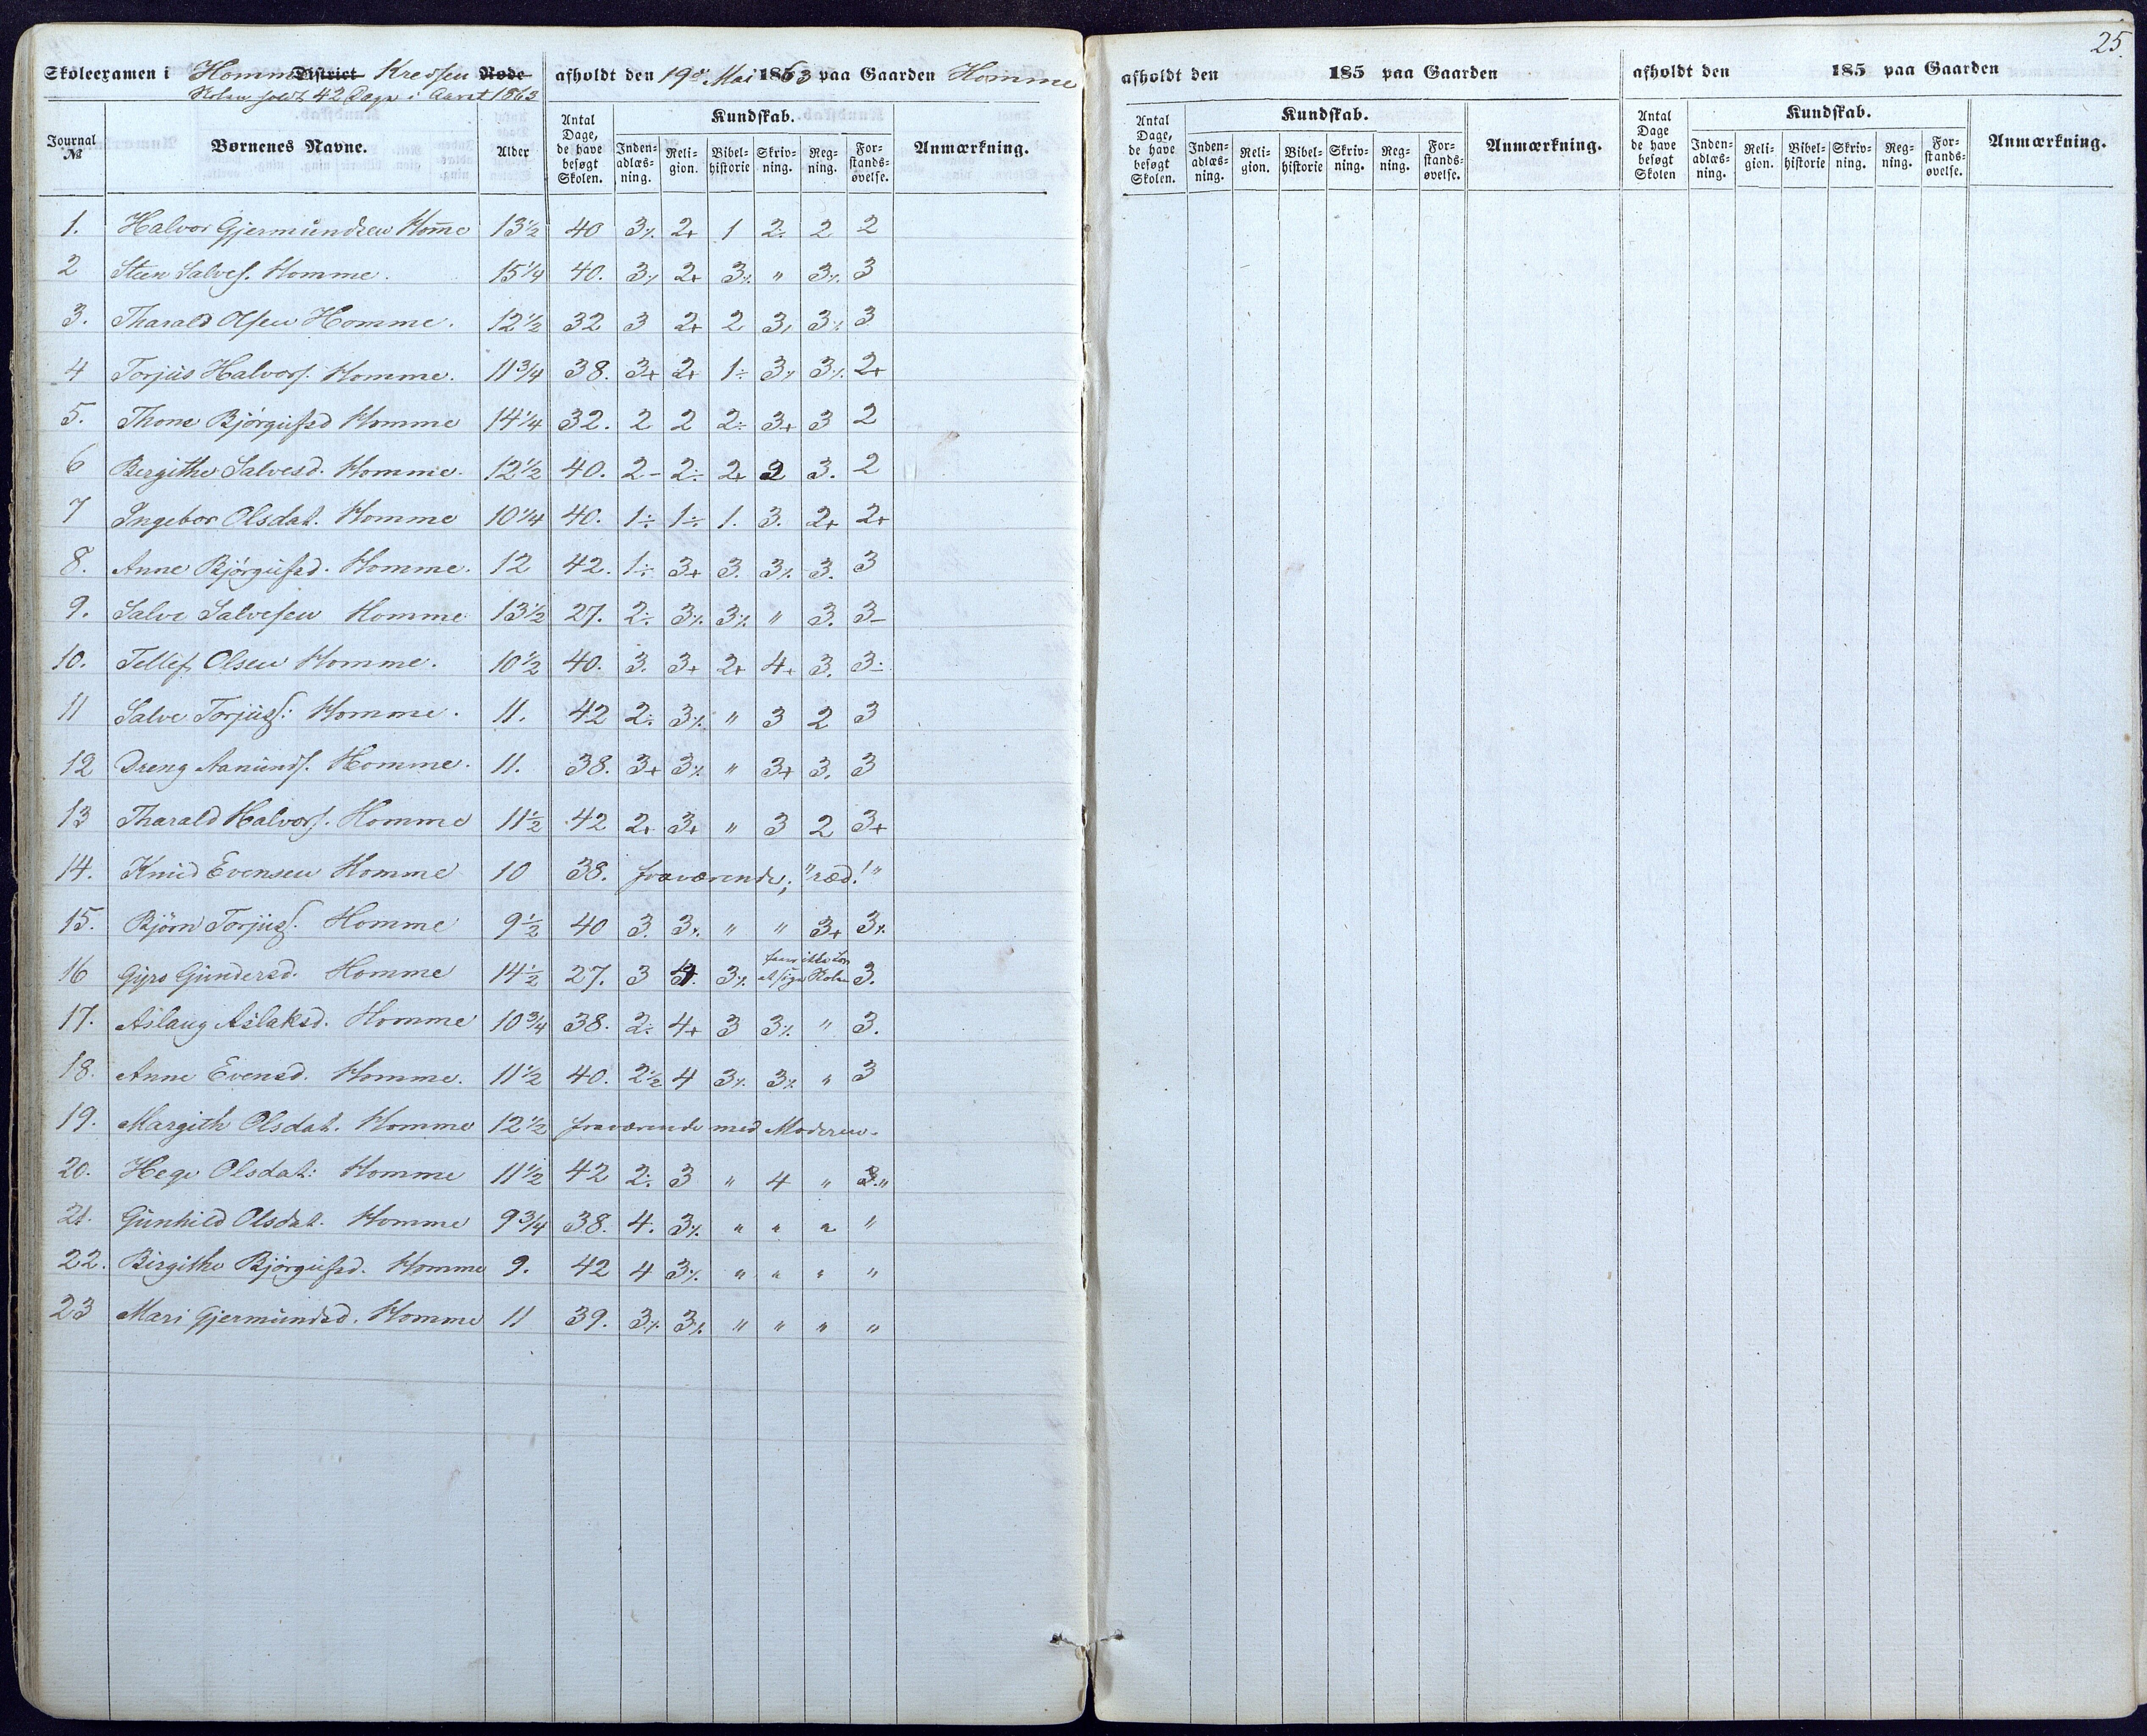 25
Skoleexamen i Homme District Kredsen Rode afholdt den 19de Mai 1863 paa Gaarden Homme
Skolen holdt 42 Dage i Aaret 1863
Journal № Børnenes Navne. Alder Antal Dage, de have besøgt Skolen. Kundskab. Inden-adlæs-ning. Reli-gion. Bibel-historie Skriv-ning. Reg-ning. For-stands-øvelse. Anmærkning.
1. Halvor Gjermundsen Home 13½ 40 3% 2+ 1 2÷ 2 2
2 Steen Salves. Homme. 15¼ 40. 3% 2+ 3% " 3% 3
3. Tharald Olsen Homme. 12½ 32 3 2+ 2 3% 3% 3
4 Torjus Halvors. Homme. 11¾ 38. 3+ 2+ 1÷ 3% 3% 2+
5. Thone Bjørgufsd Homme 14¼ 32. 2 2 2÷ 3+ 3 2
6 Bergithe Salvesd. Homme. 12½ 40. 2- 2÷ 2+ 2 3. 2
7 Ingebor Olsdat. Homme 10¼ 40. 1÷ 1÷ 1. 3. 2+ 2+
8. Anne Bjørgufsd. Homme. 12 42. 1÷ 3+ 3. 3% 3. 3
9. Salve Salvesen Homme 13½ 27. 2÷ 3% 3% " 3. 3-
10. Tellef Olsen Homme. 10½ 40. 3. 3+ 2+ 4+ 3. 3÷
11 Salve Torjuss: Homme. 11. 42 2÷ 3% " 3 2 3
12 Dreng Aamunds. Homme. 11. 38. 3+ 3% " 3+ 3. 3
13 Tharald Halvors. Homme 11½ 42 2+ 3+ " 3 2 3+
14. Knud Evensen Homme 10 38. fraværende; "ræd!"
15. Bjørn Torjuss. Homme 9½ 40 3. 3% " " 3+ 3%
16 Gyro Gundersd. Homme 14½ 27. 3 3% ikke at søge Skolen 3.
17. Aslaug Aslaksd. Homme 10¾ 38. 2÷ 4+ 3 3% " 3.
18. Anne Evensd. Homme. 11½ 40. 2½ 4 3% 3% " 3
19. Margith Olsdat. Homme 12½ fraværende med Moderen.
20. Hege Olsdat: Homme 11½ 42 2÷ 3 " 4 " 3."
21. Gunhild Olsdat. Homme 9¾ 38. 4. 3% " " " "
22. Birgithe Bjørgufsd. Homme 9. 42 4 3% " " " "
23 Mari Gjermundsd. Homme 11 39. 3% 3% " " " "
afholdt den 185 paa Gaarden
Antal Dage, de have besøgt Skolen. Kundskab. Inden-adlæs-ning. Reli-gion. Bibel-historie Skriv-ning. Reg-ning. For-stands-øvelse. Anmærkning.
afholdt den 185 paa Gaarden
Antal Dage de have besøgt Skolen Kundskab. Inden-adlæs-ning. Reli-gion. Bibel-historie Skriv-ning. Reg-ning. For-stands-øvelse. Anmærkning.